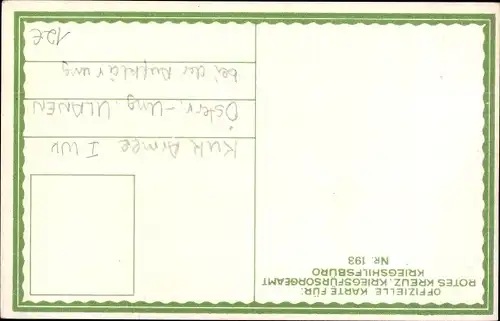 OFFIZIELLE KARTE FÜR:
ROTES KREUZ, KRIEGSFÜRSORGEAMT
KRIEGSHILFSBÜRO
Nr. 193
KuK Armee I WK
Österr.-Ung. ULANEN
bei der Aufklärung
12€